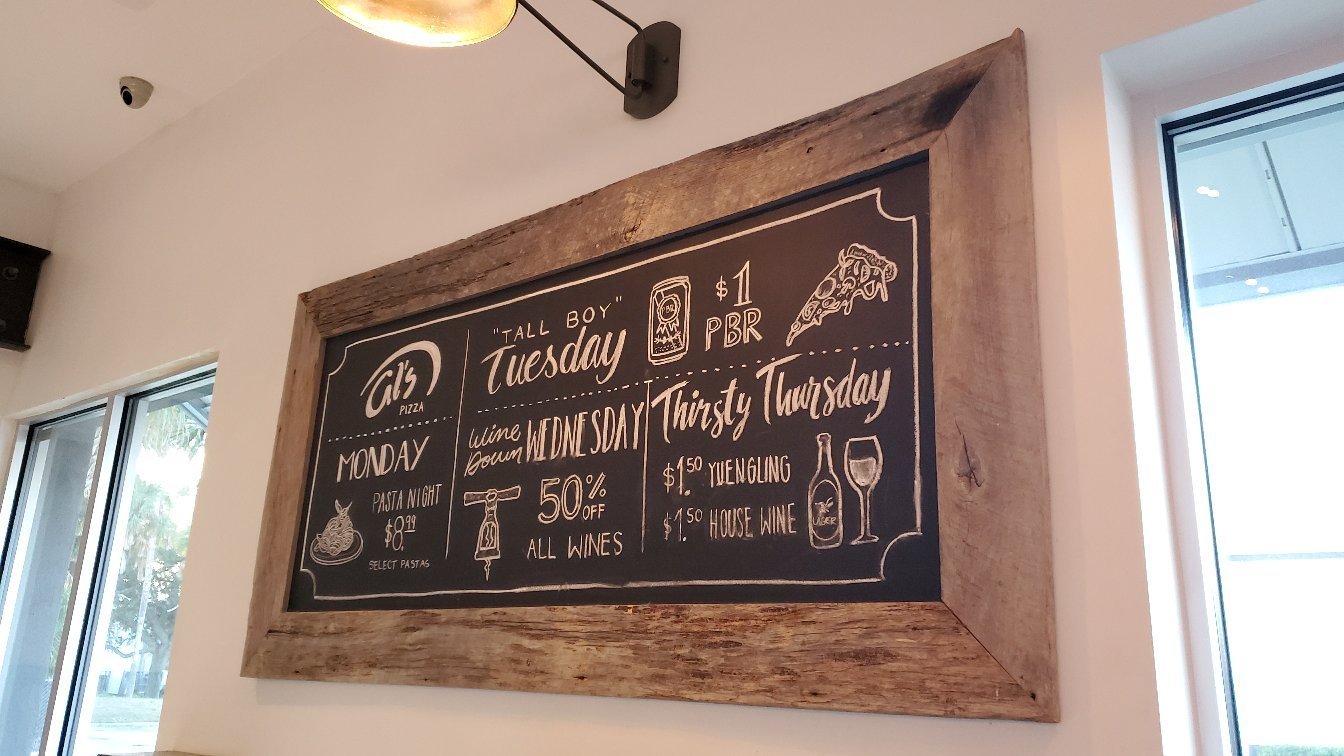 Al's
PIZZA
MONDAY
PASTA NIGHT
$8.99
SELECT PASTAS
"TALL BOY"
Tuesday
PBR
$1
PBR
Wine
Down WEDNESDAY
50%
OFF
ALL WINES
Thirsty Thursday
$1.50 YUENGLING
$1.50 HOUSE WINE
LAGER